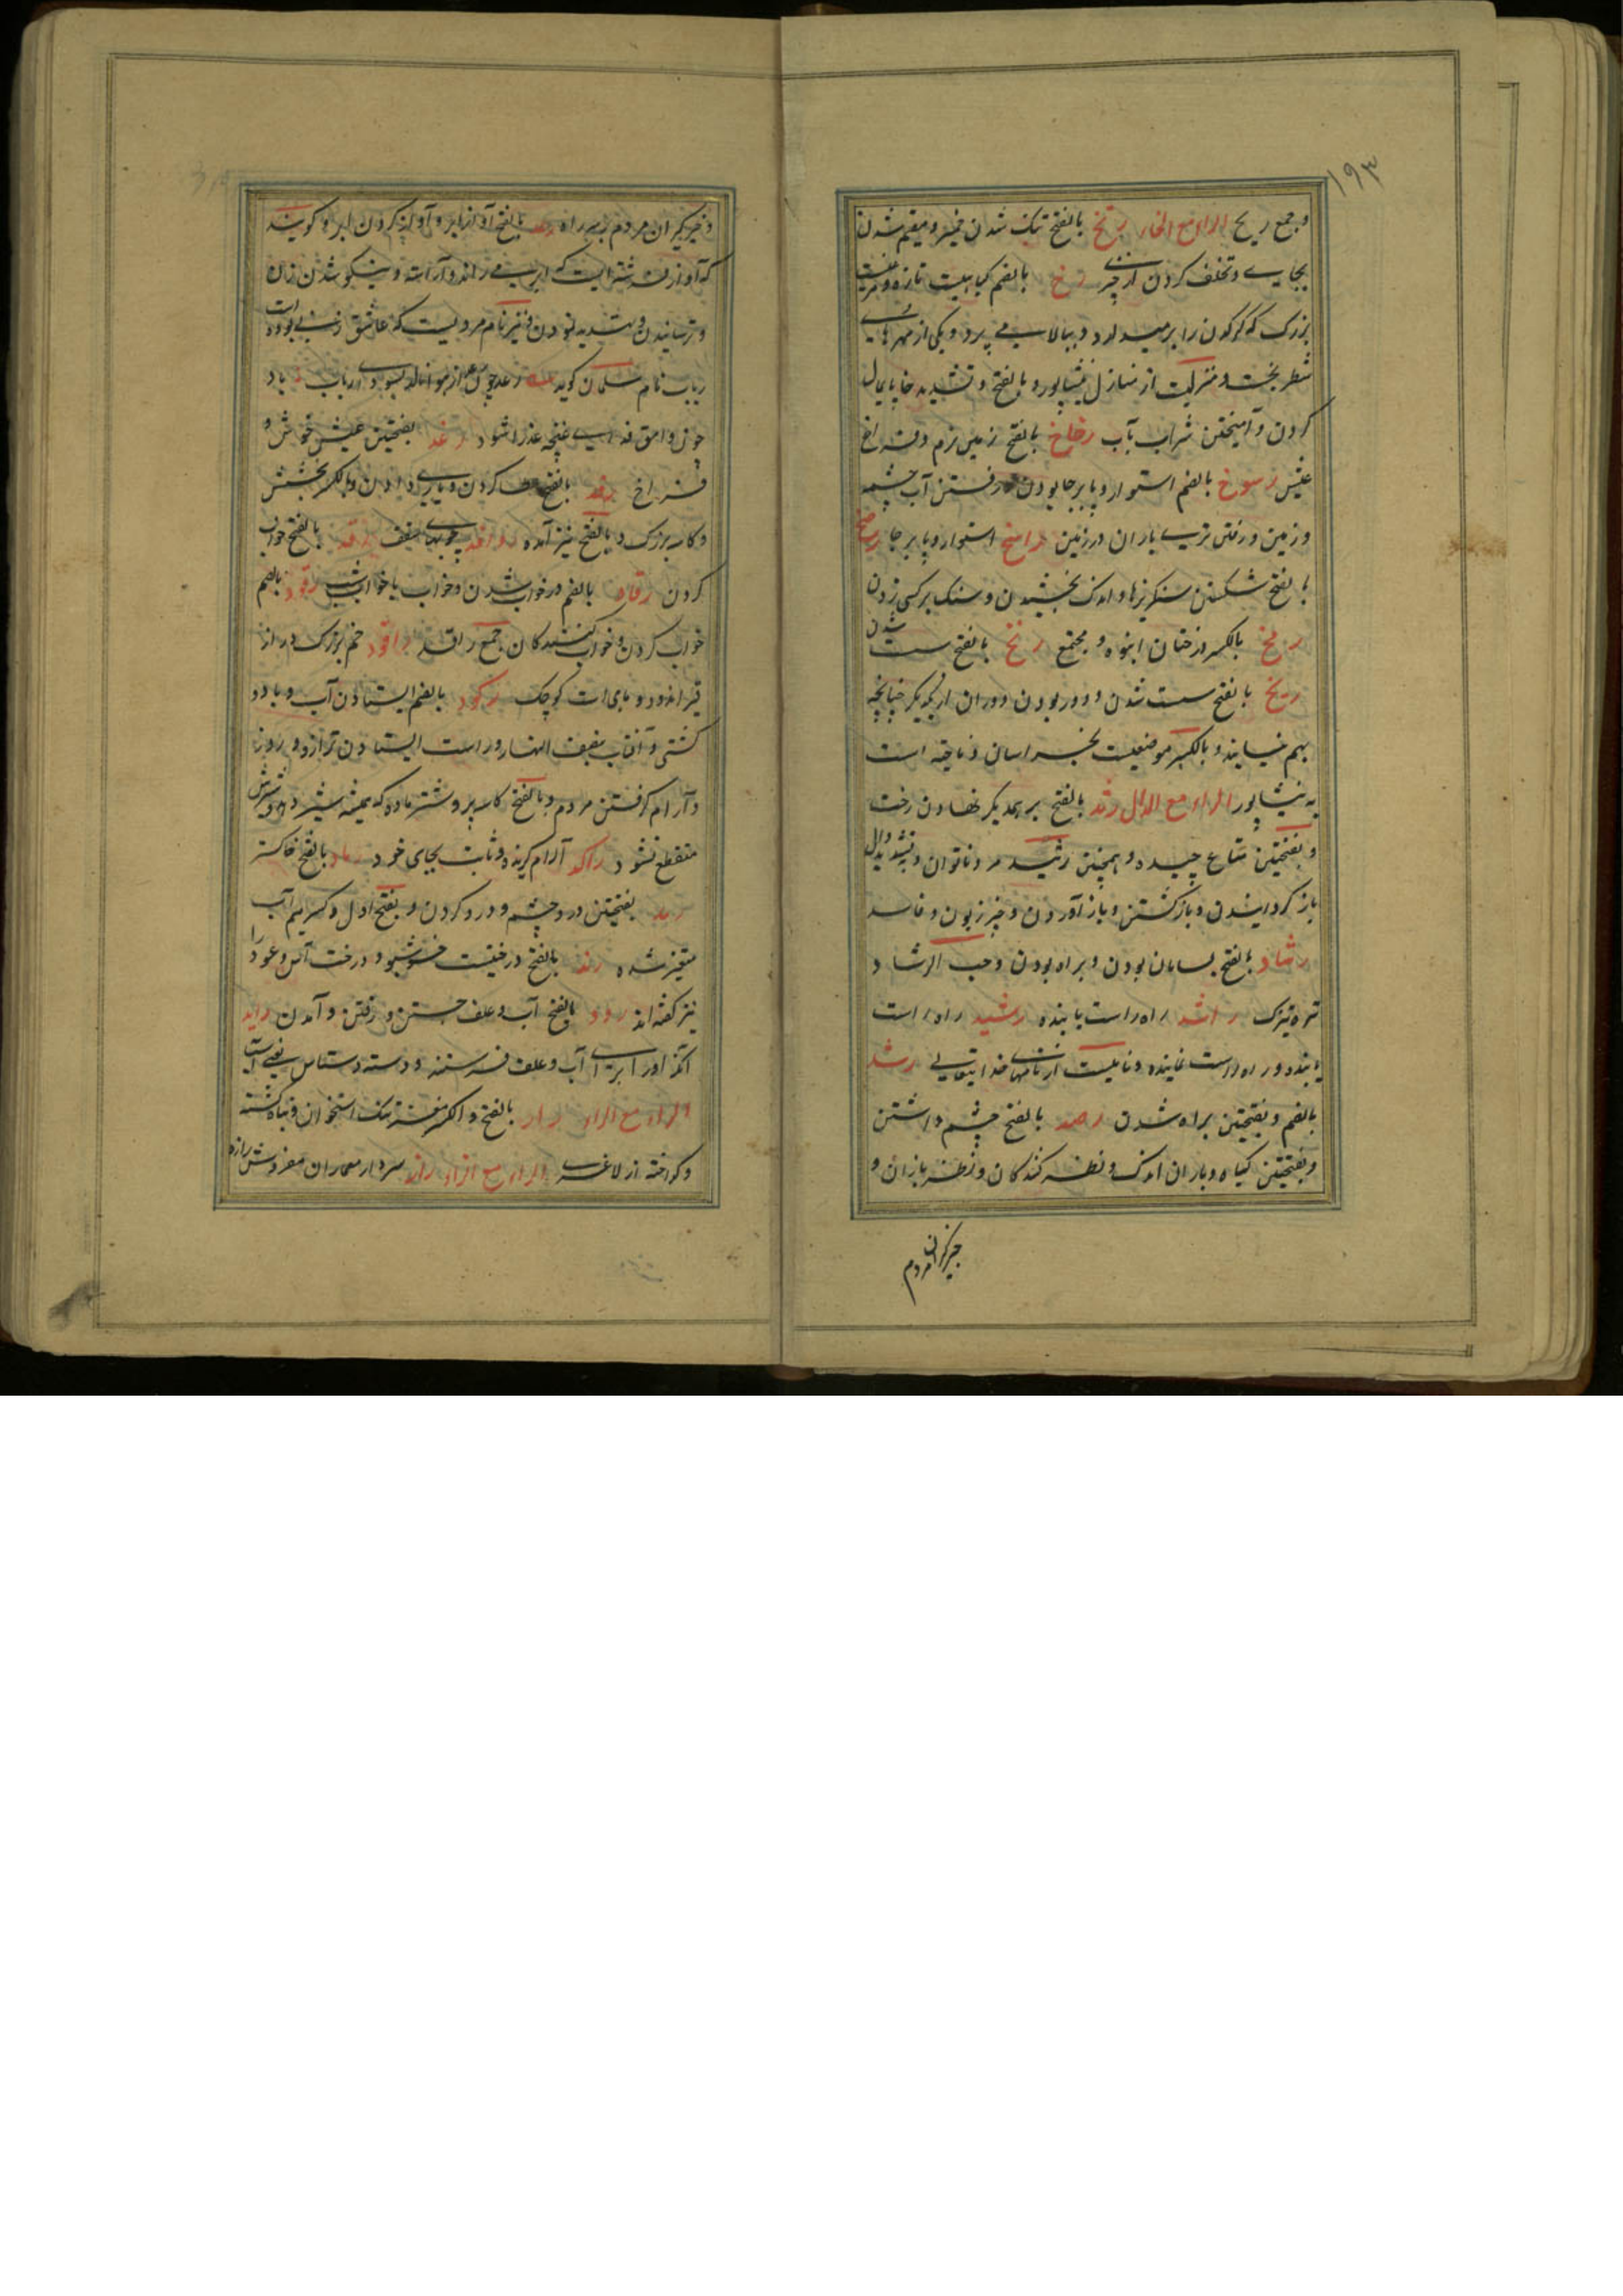 ۱۹۳
و جمع ریح الراء مع الخاء رتخ بالفتح تنک شدن خمیر و مقیم شدن
بجایے و تخلف کردن از چیزے رخ بالضم کیاهیست تازه و مرغیست
بزرک که کرکدن را برمیدارد و ببالا مے پرد و یکی از مهرهاے
شطرنجست و منزلیست از منازل نیشاپور و بالفتح و تشدید خا پایمال
کردن و آمیختن شراب بآب رخاخ بالفتح زمین نرم و فراخ
عیش رسوخ بالضم استوار و پا برجا بودن و رفتن آب چشمه
و زمین و رفتن تری باران در زمین راسخ استوار و پا برجا رضخ
بالفتح شکستن سنکریزها و اندک بخشیدن و سنک بر کسی زدن
رمخ بالکسر درختان انبوه و مجتمع رنخ بالفتح سست شدن
ریخ بالفتح سست شدن و دور بودن دو ران از یکدیکر چنانچه
بهم نیایند و بالکسر موضعیست بخراسان و ناحیه است
به نیشاپور الراء مع الدال رثد بالفتح بر یکدیکر نهادن رخت
و بفتحتین متاع چیده و همچنین رثید مرد ناتوان و بتشدید دال
باز کردانیدن و باز کشتن و باز آوردن و چیز زبون و فاسد
رشاد بالفتح بسامان بودن و براه بودن و حب الرشاد
تره تیزک راشد راه راست یابنده رشید راه راست
یابنده و راه راست نماینده و نامیست از نامهای خدایتعالے رشد
بالضم و بفتحتین براه شدن رصد بالفتح چشم داشتن
و بفتحتین کیاه و باران اندک و نظر کنندکان و نظر بازان و
خبرکیران مردم
و خبرکیران مردم بر سر راه رعد بالفتح آواز ابر و آواز کردن ابر و کویند
که آواز فرشته ایست که ابر مے راند و آراسته و نیکو شدن زن
و ترسانیدن و تهدید نمودن و نیز نام مردیست که عاشق زنے بوده است
رباب نام سلمان کوید رعد چون از هوا نالد بسودای رباب باد
چون وامق فدای غنچه عذرا شود رغد بفتحتین عیش خوش و
فراخ رفد بالفتح کردن و یاری دادن و بالکسر بخشش
و کاسه بزرک و بالفتح نیز آمده روافد چوبهای سقف رقد بالفتح خواب
کردن رقاد بالضم در خواب شدن و خواب یا خواب شب رقود بالضم
خواب کردن و خواب کنندکان جمع راقد راقود خم بزرک دراز
قیر اندود و ماهی است کوچک رکود بالضم ایستادن آب و باد و
کشتی و آفتاب بنصف النهار و راست ایستادن ترازو و روز
و آرام کرفتن مردم و بالفتح کاسه پر و شتر ماده که همیشه شیر دهد و شیرش
منقطع نشود راکد آرام کیرنده و ثابت بجای خود رماد بالفتح خاکستر
رمد بفتحتین درد چشم و درد کردن و بفتح اول و کسر میم آب
متغیر شده رند بالفتح درختیست خوشبو و درخت آس و عود را
نیز کفته اند رود بالفتح آب و علف جستن و رفتن و آمدن راید
آنکه او را برای آب و علف فرستند و دسته دستاس یعنی آسیا
الراء مع الراء رار بالفتح و الکسر مغز تنک استخوان و تباه کشته
و کداخته از لاغری الراء مع الزاء راز سردار معماران مفروش رازه